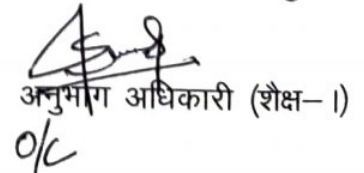 अनुभाग अधिकारी (शैक्ष– I)
O/C